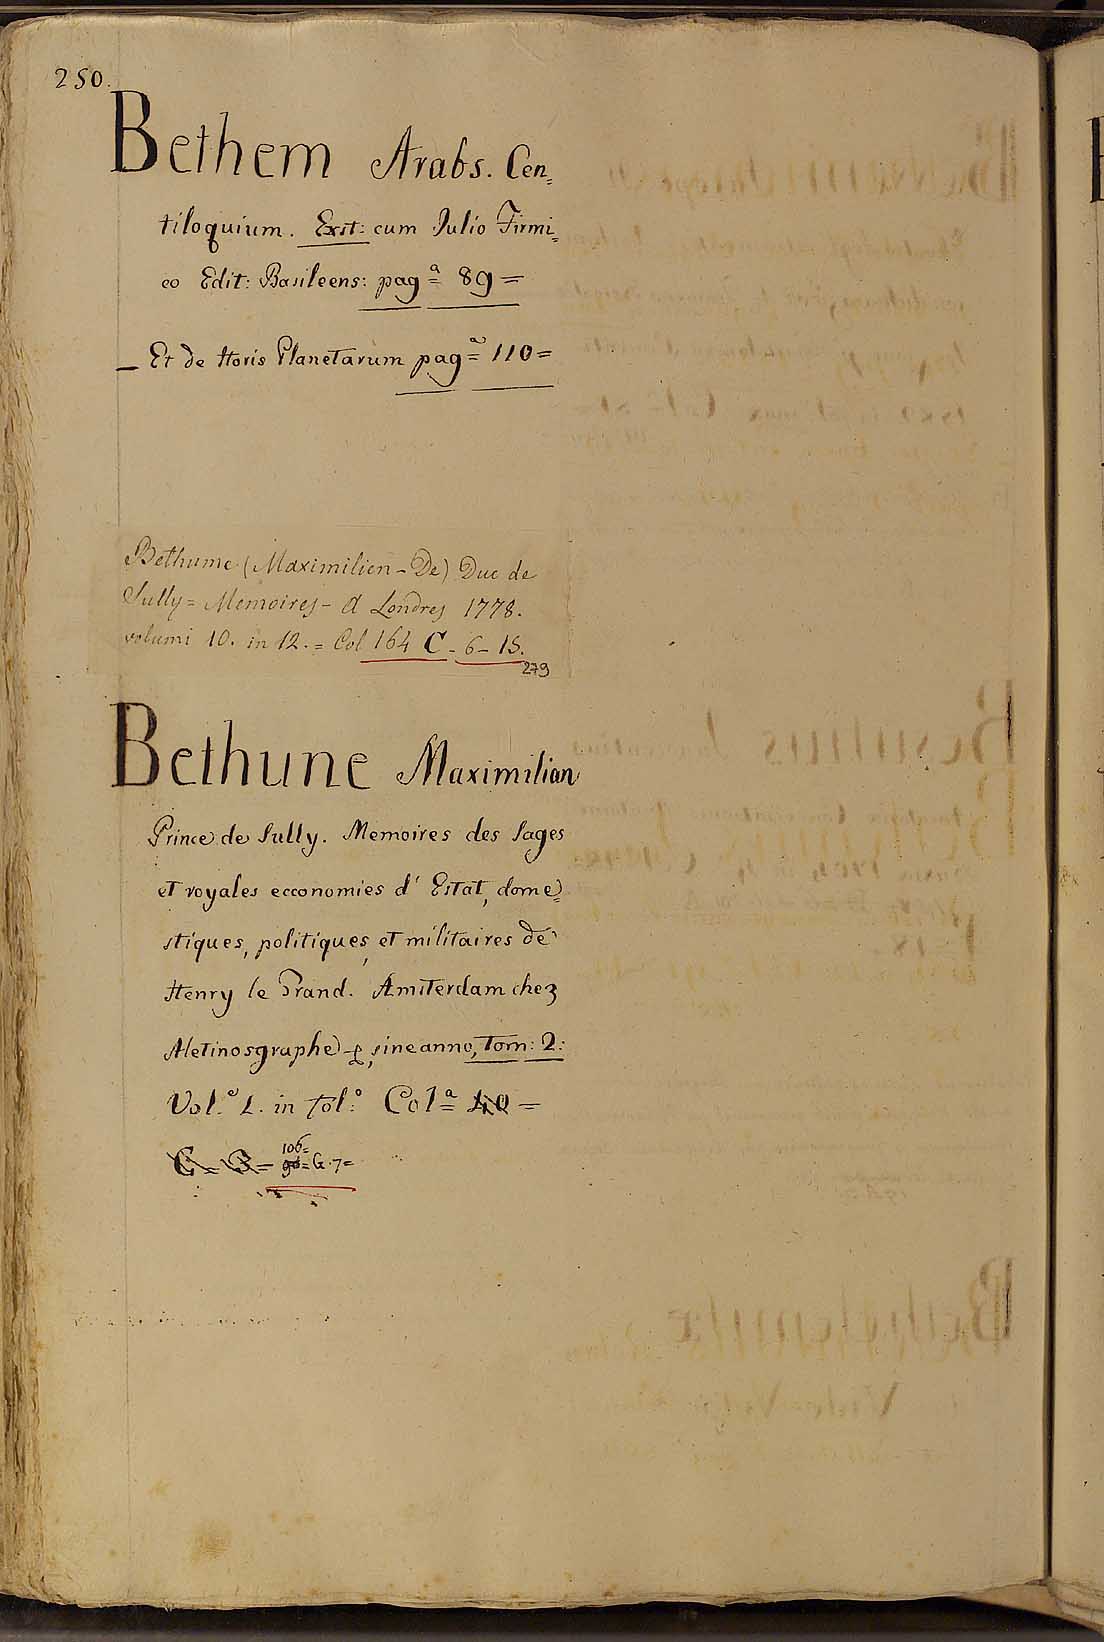 250.
Bethem Arabs. Cen=
tiloquium. Exst: cum Julio Firmi=
co Edit: Basileens: pag.ª 89=
_ Et de Horis Planetarum pag.ª 110=
Bethume (Maximilien-De) Duc de
Sully= Memoires- A Londres 1778.
volumi 10. in 12.= Col 164 C-6-15.
279
Bethune Maximilian
Prince de Sully. Memoires des Sages
et royales economies d' Estat, dome=
stiques, politiques, et militaires de
Henry le Grand. Amsterdam chez
Aletinosgraphe, sine anno, Tom: 2:
Vol.º 1. in fol.º Col.ª 40=
C=3= 106= G.7=